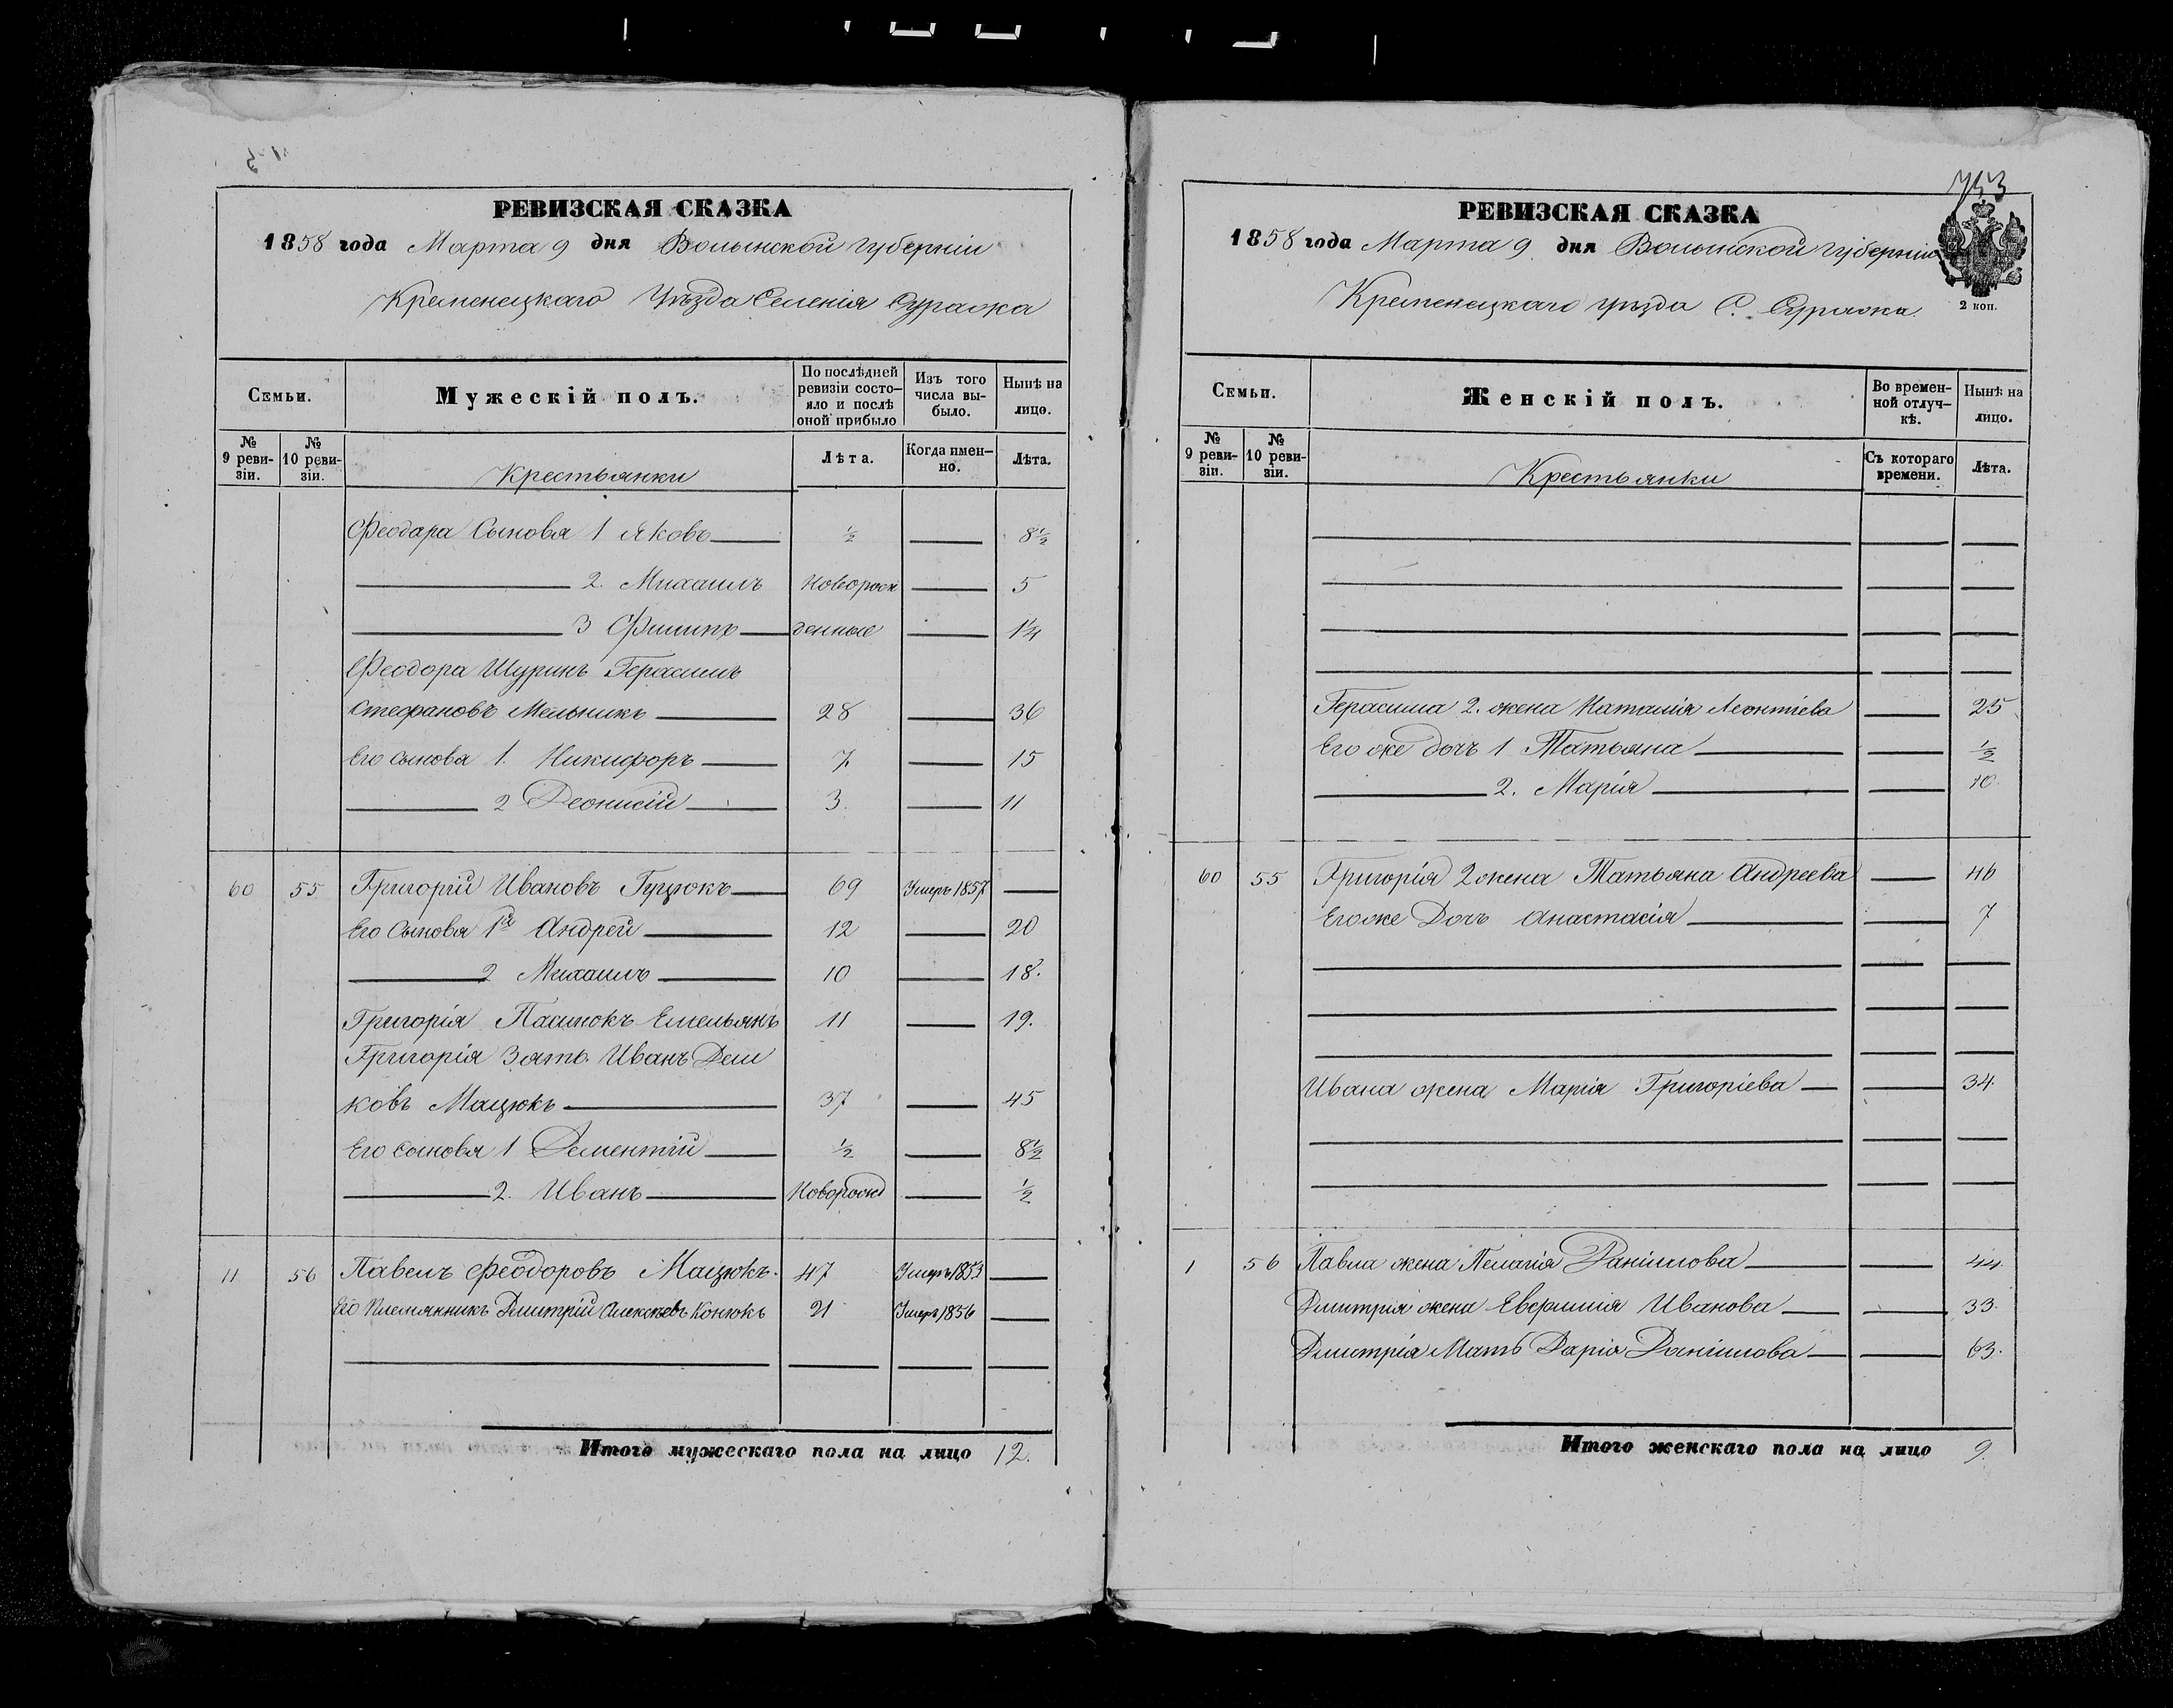 РЕВИЗСКАЯ СКАЗКА
1858 года Марта 9 дня Волынской губерніи
Кременецкаго Уѣзда Селенія Сураска
Семьи.
Мужескій полъ.
По послѣдней ревизіи состояло и послѣ оной прибыло
Изъ того числа выбыло.
Нынѣ на лицо.
№ 9 ревизіи.
№ 10 ревизіи.
Крестьянки
Лѣта.
Когда именно.
Лѣта.
Феодара Сыновя 1 Яковъ ½ 8½
2. Михаилъ Новорож 5
3 Филипъ денные 1¼
Феодора Шуринъ Герасимъ
Стефановъ Мельникъ 28 36
Его сыновя 1. Никифоръ 7 15
2 Деонисій 3. 11
60 55 Григорій Ивановъ Гуцюкъ 69 Умеръ 1857
Его Сыновя 1й Андрей 12 20
2 Михаилъ 10 18.
Григорія Пасинокъ Емельянъ 11 19.
Григорія Зять Иванъ Дем
ковъ Мацюкъ 37 45
Его сыновя 1 Дементій ½ 8½
2. Иванъ Новорожд ½
11 56 Павелъ Феодоровъ Мацюкъ. 47 Умеръ 1853
Его Племянникъ Дмитрій Алексѣевъ Конюкъ 21 Умеръ 1856
Итого мужескаго пола на лицо 12.
753
РЕВИЗСКАЯ СКАЗКА
1858 года Марта 9 дня Волынской губерніи
Кременецкаго уѣзда С. Сураска.
2 коп.
Семьи.
Женскій полъ.
Во временной отлучкѣ.
Нынѣ на лицо.
№ 9 ревизіи.
№ 10 ревизіи.
Крестьянки
Съ котораго времени.
Лѣта.
Герасима 2. жена Наталія Леонтіева 25
Его же дочъ 1 Татьяна ½
2. Марія 10.
60 55 Григорія 2 жена Татьяна Андреева 46
Егоже Дочъ Анастасія 7
Ивана жена Марія Григоріева 34.
1 56 Павла жена Пелагія Даніилова 44.
Дмитрія жена Евфимія Иванова 33.
Дмитрія Мать Дарія Даніилова 63.
Итого женскаго пола на лицо 9.